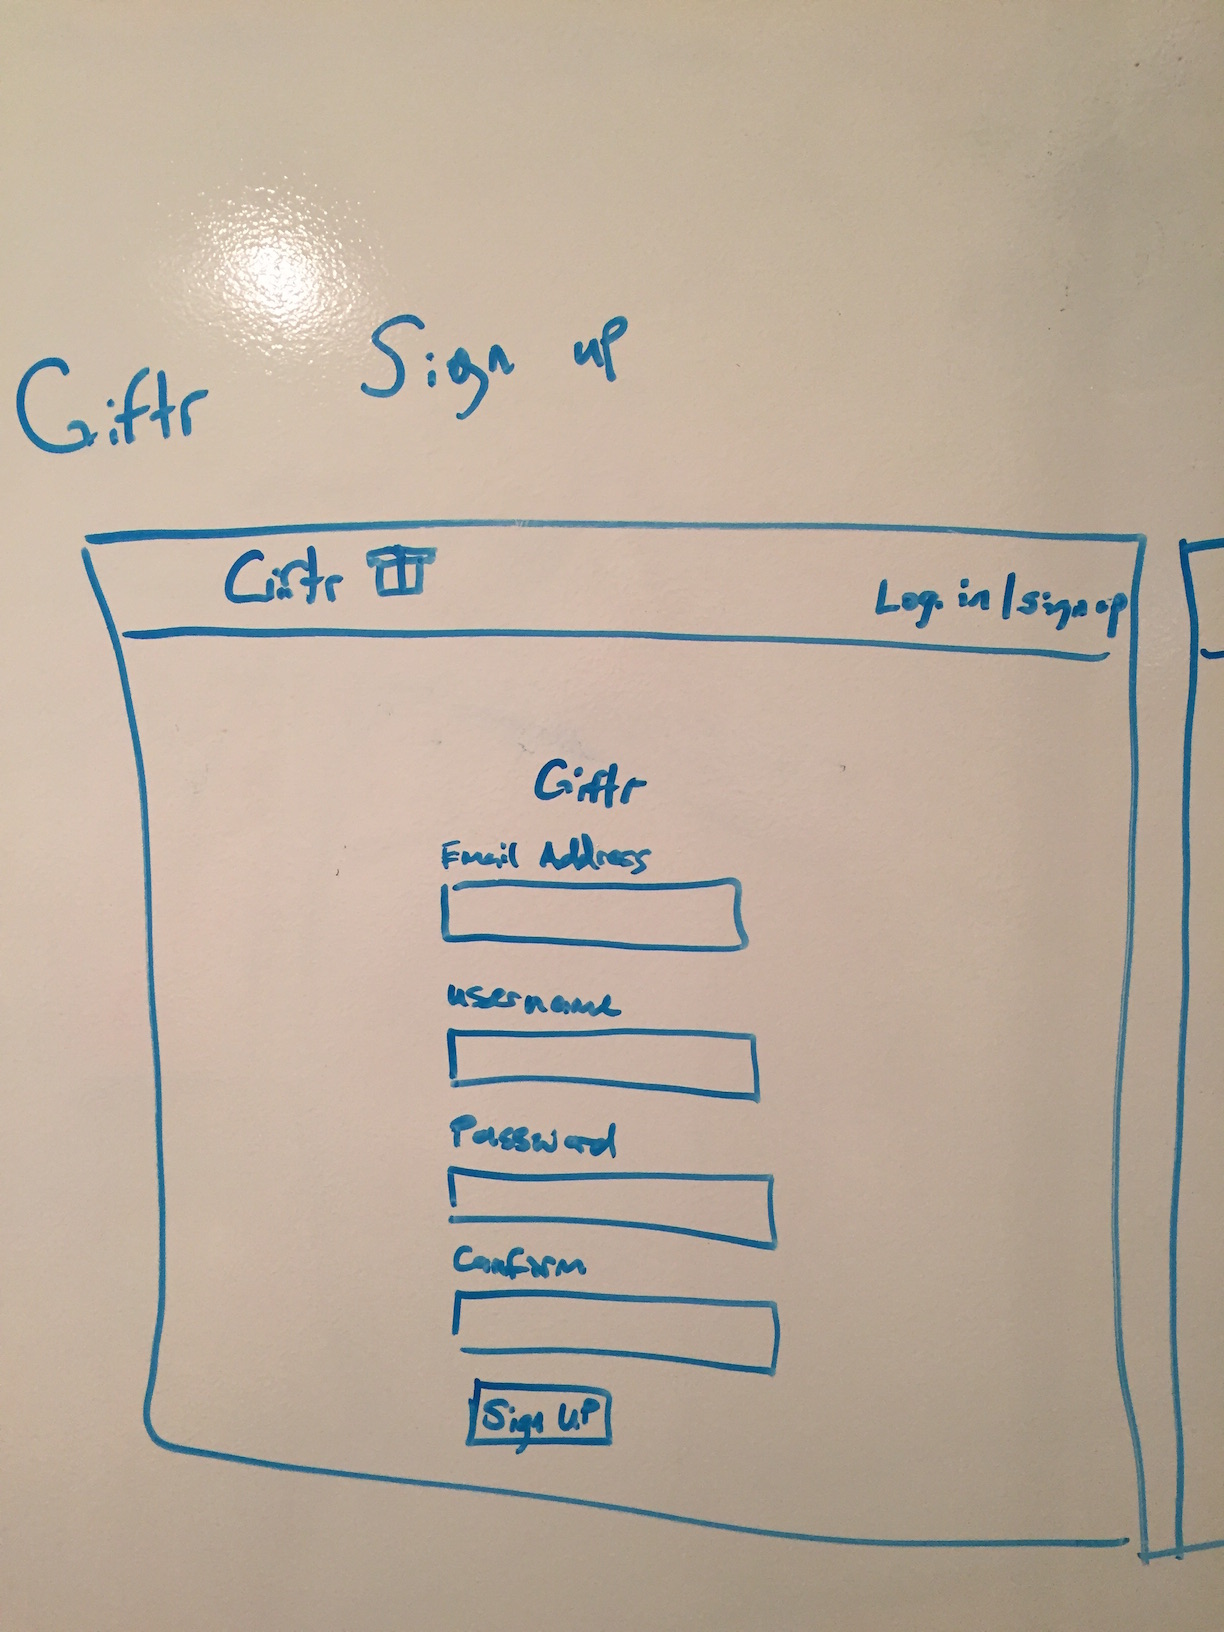 Giftr
Sign up
Giftr
Log in/sign up
Giftr
Email Address
username
Password
Confirm
Sign UP